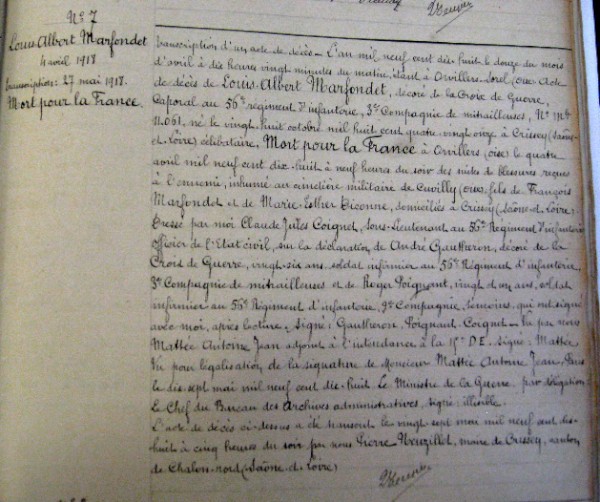 N° 7
Louis Albert Marfondet
4 avril 1918
Transcription: 27 mai 1918.
Mort pour la France.
Transcription d'un acte de décès. L'an mil neuf cent dix huit le douze du mois
d'avril à dix heures vingt minutes du matin, étant à Orvillers-Sorel (Oise) Acte
de décès de Louis Albert Marfondet, décoré de la Croix de Guerre,
Caporal au 56e régiment d'infanterie, 3e Compagnie de mitrailleuses, N° Mle
11.061, né le vingt huit octobre mil huit cent quatre vingt onze à Crissey (Saône-
et-Loire) célibataire, Mort pour la France à Orvillers (Oise) le quatre
avril mil neuf cent dix-huit à neuf heures du soir des suites de blessures reçues
à l'ennemi, inhumé au cimetière militaire de Cuvilly (Oise) fils de François
Marfondet et de Marie Esther Diconne, domiciliés à Crissey (Saône-et-Loire).
Dressé par moi Claude Jules Coignet, Sous-Lieutenant au 56e Régiment d'infanterie
officier de l'Etat civil, sur la déclaration de André Gautheron, décoré de la
Croix de Guerre, vingt-six ans, soldat infirmier au 56e Régiment d'infanterie,
3e Compagnie de mitrailleuses et de Roger Poignant, vingt et un ans, soldat
infirmier au 56e Régiment d'infanterie, 9e Compagnie, témoins, qui ont signé
avec moi, après lecture. Signé: Gautheron, Poignant, Coignet. Vu par nous
Mattée Antoine Jean adjoint à l'intendance à la 15e D.E. Signé: Mattée
Vu pour légalisation de la signature de Monsieur Mattée Antoine Jean, Paris
le dix-sept mai mil neuf cent dix-huit. Le Ministre de la Guerre, par délégation
Le Chef du Bureau des Archives administratives, signé: illisible.
L'acte de décès ci-dessus a été transcrit le vingt sept mai mil neuf cent dix-
huit à cinq heures du soir par nous Pierre, maire de Crissey, canton
de Chalon-nord (Saône-et-Loire)